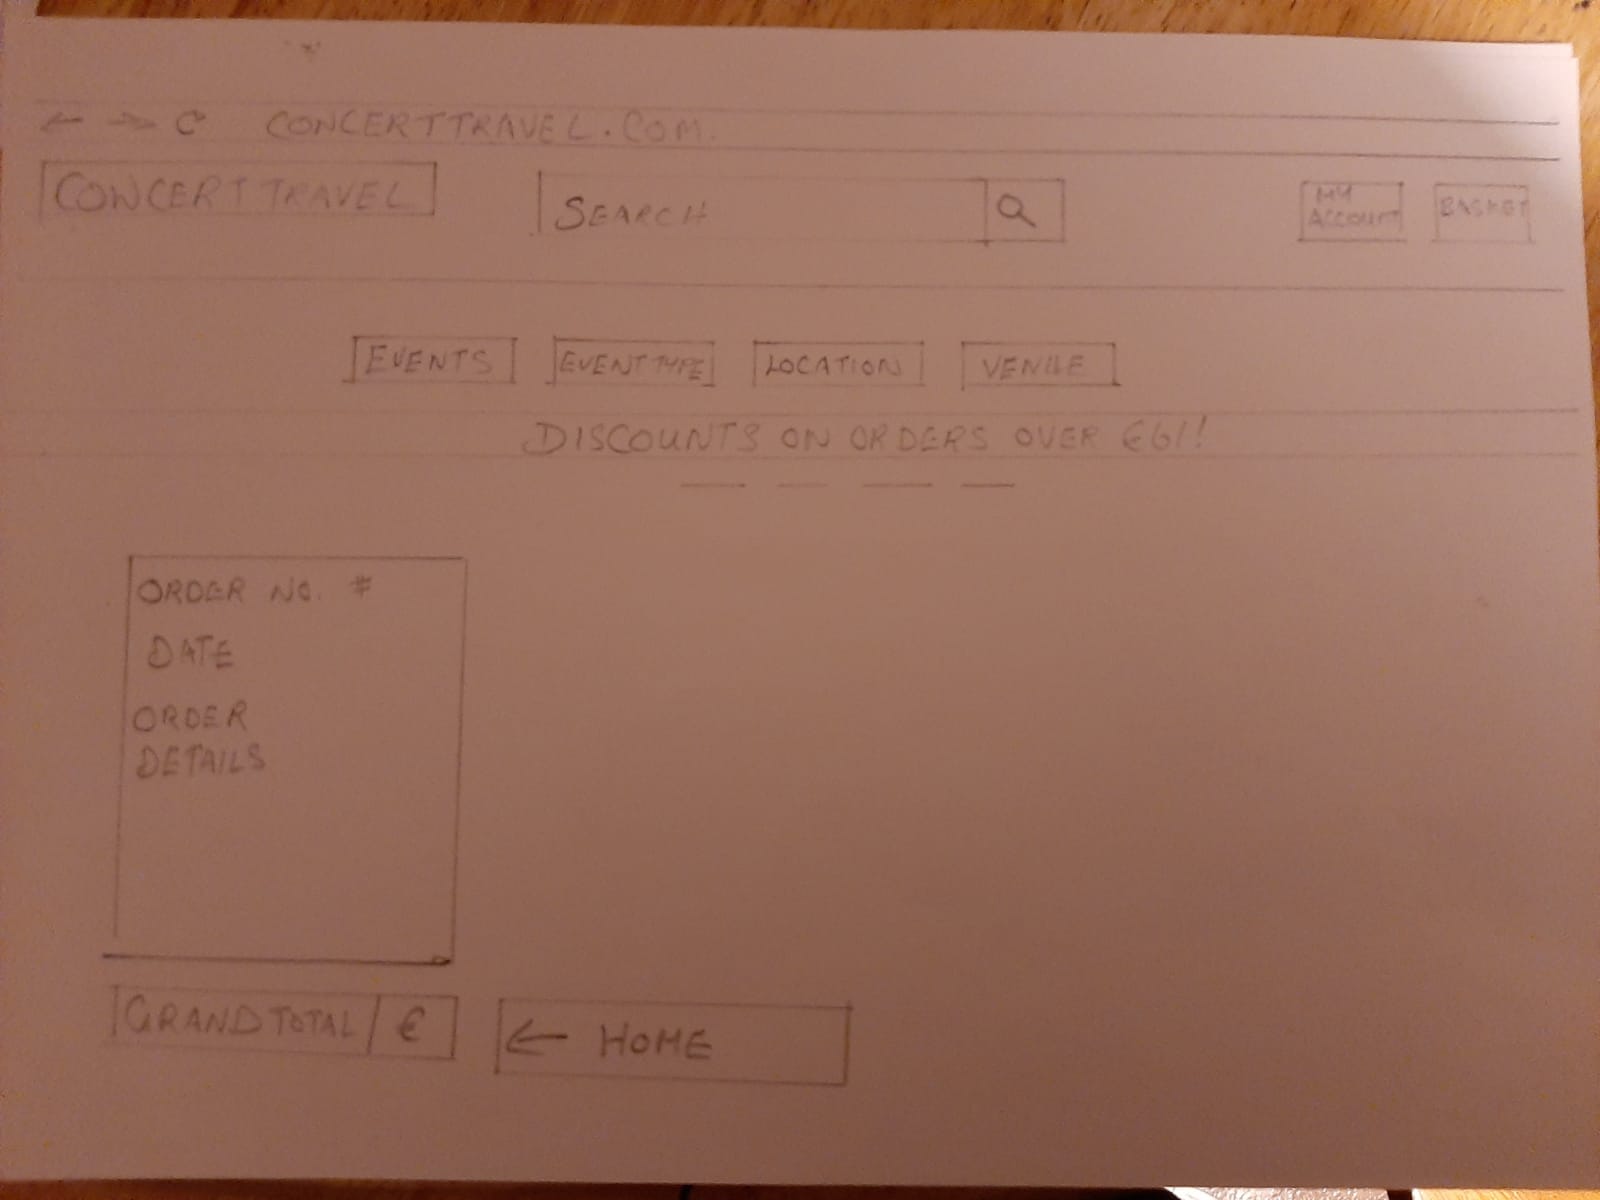 CONCERTTRAVEL.COM.
CONCERT TRAVEL
SEARCH
MY
ACCOUNT
BASKET
EVENTS
EVENT TYPE
LOCATION
VENUE
DISCOUNTS ON ORDERS OVER €61!
ORDER NO. #
DATE
ORDER
DETAILS
GRAND TOTAL €
← HOME